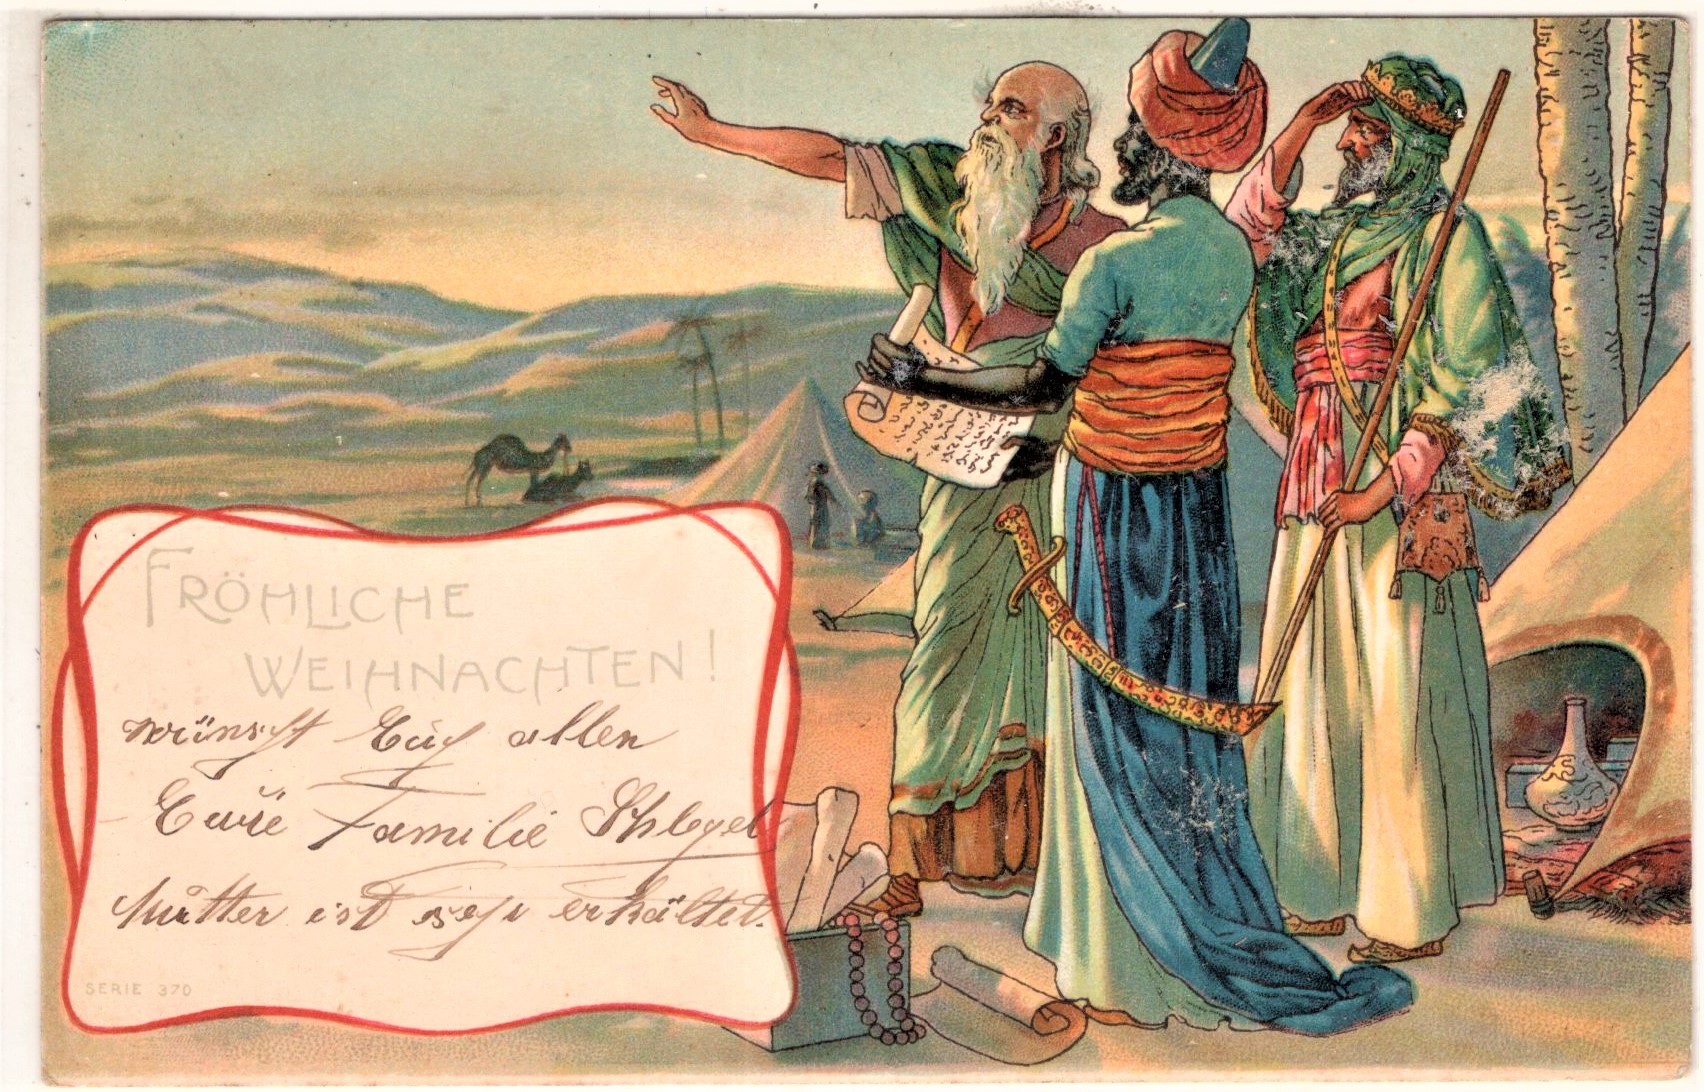 FRÖHLICHE
WEIHNACHTEN!
wünscht Euch allen
Eure Familie Schlegel
Mutter ist sehr erkältet.
SERIE 370